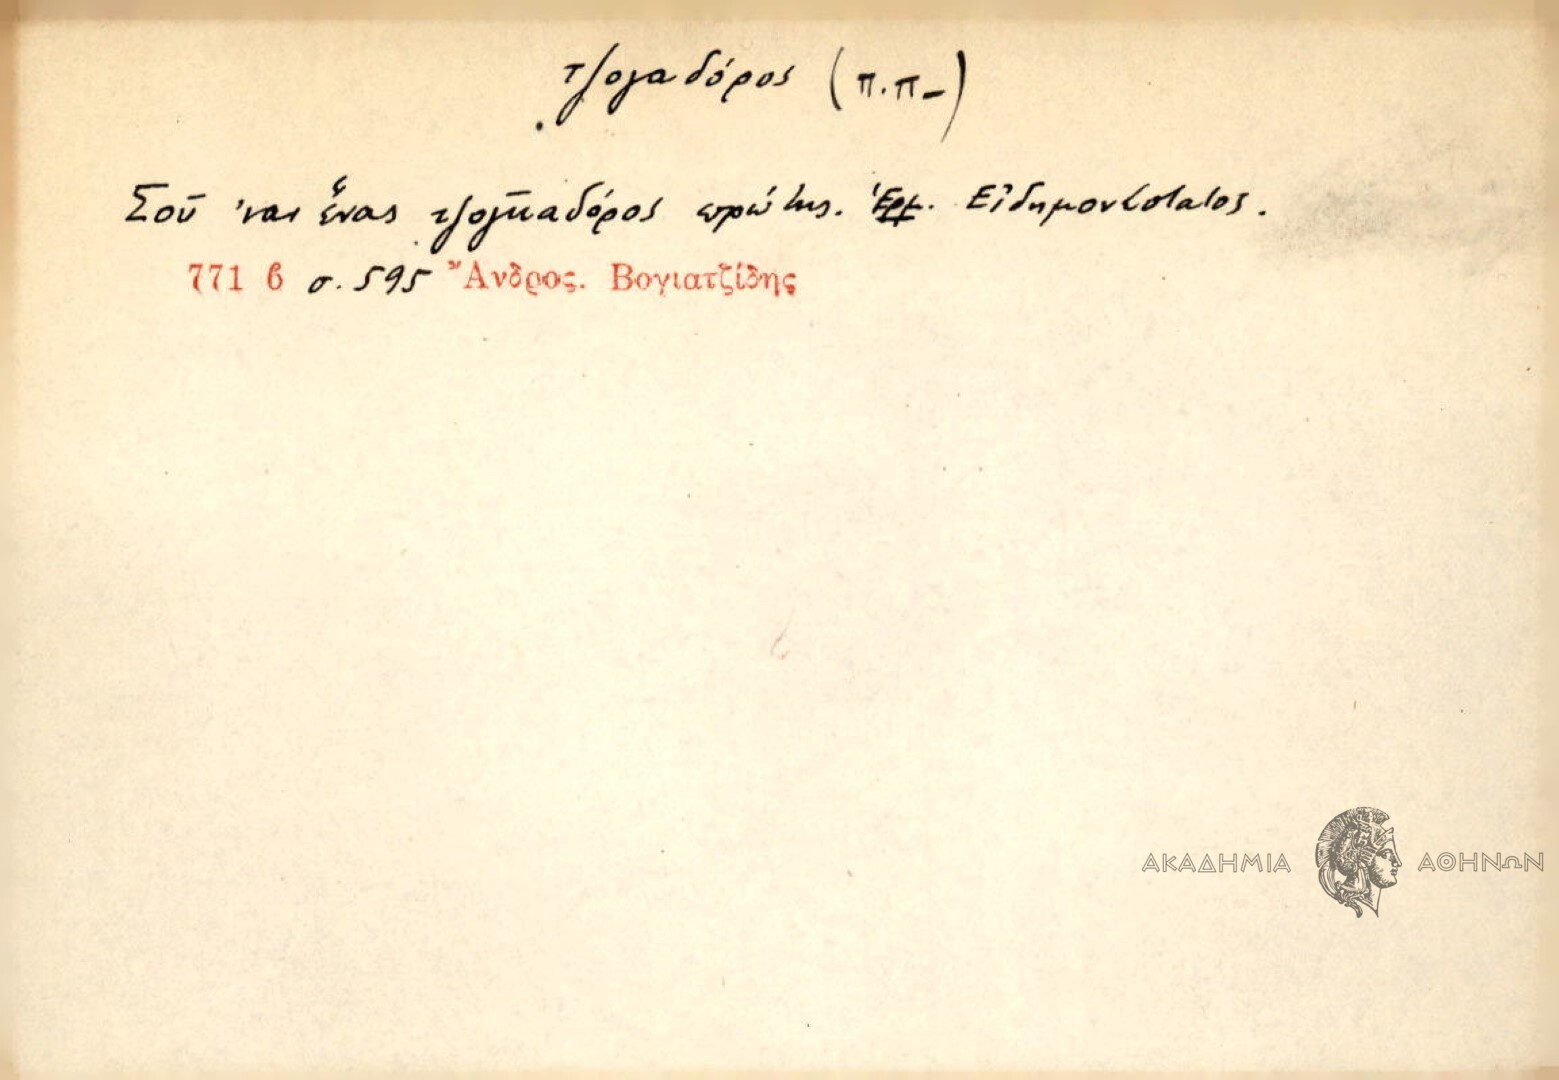 τζογαδόρος (π.π-)
Σοῦ 'ναι ἕνας τζογαδόρος πρώτης. Ἑρμ. Εἰδημονέστατος.
771 β σ. 595 Ἄνδρος. Βογιατζίδης
ΑΚΑΔΗΜΙΑ ΑΘΗΝΩΝ